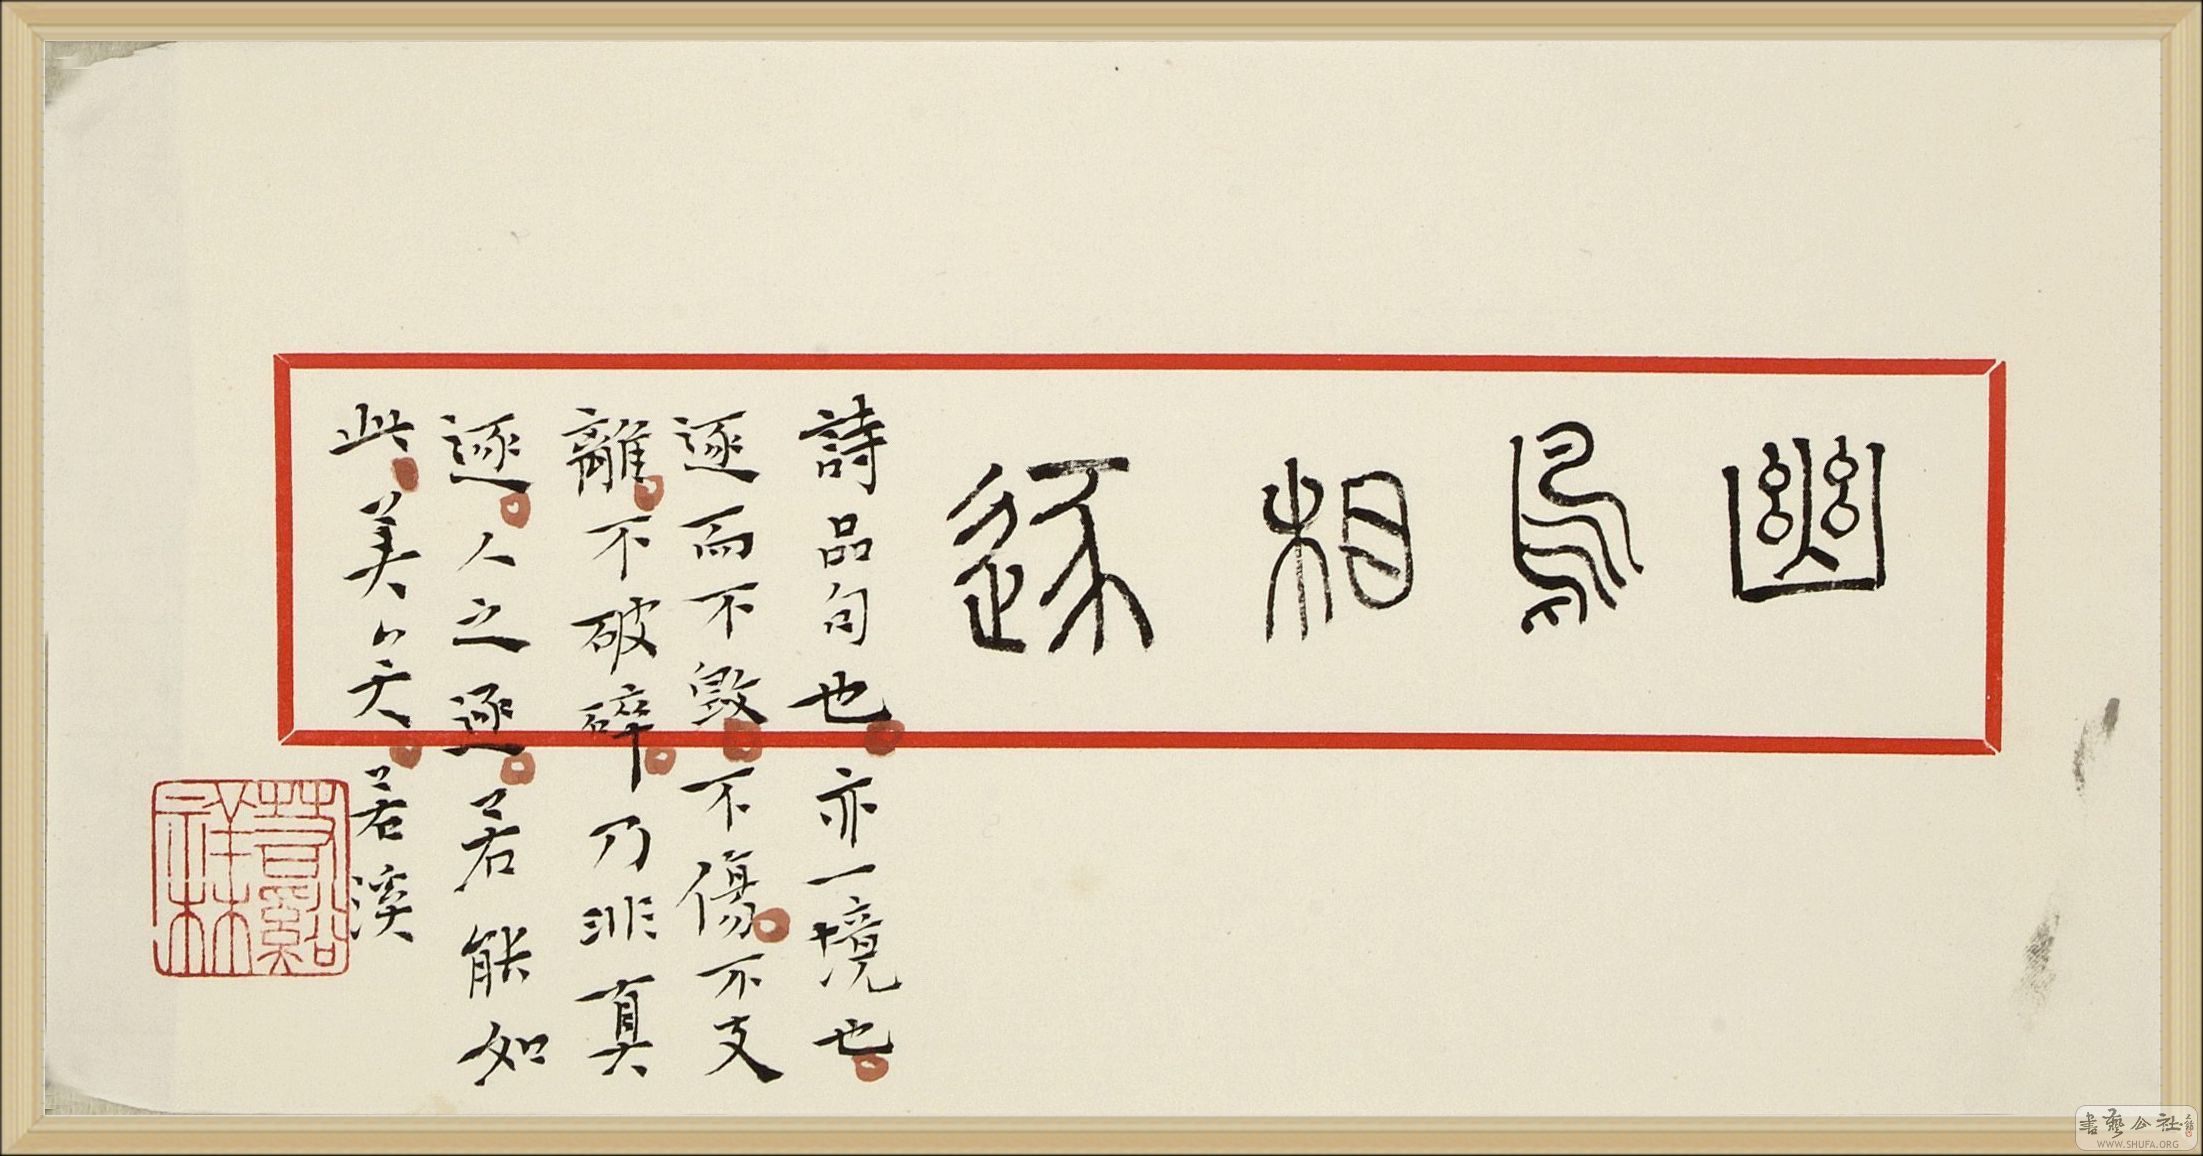 幽鳥相逐
詩品句也亦一境也
逐而不毀不傷不支
離不破碎乃非真
逐人之逐若能如
此美矣若溪
谿祥林
書藝公社
WWW.SHUFA.ORG